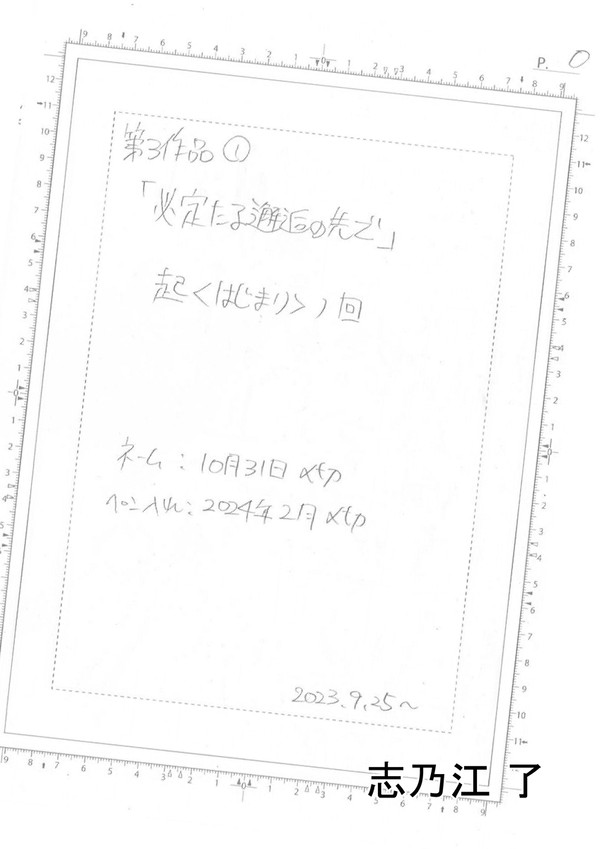 P. 0
第3作品①
「必定たる邂逅の先で」
起<はじまり>ノ回
ネーム：10月31日〆切
ペン入れ：2024年2月〆切
2023.9.25〜
志乃江 了